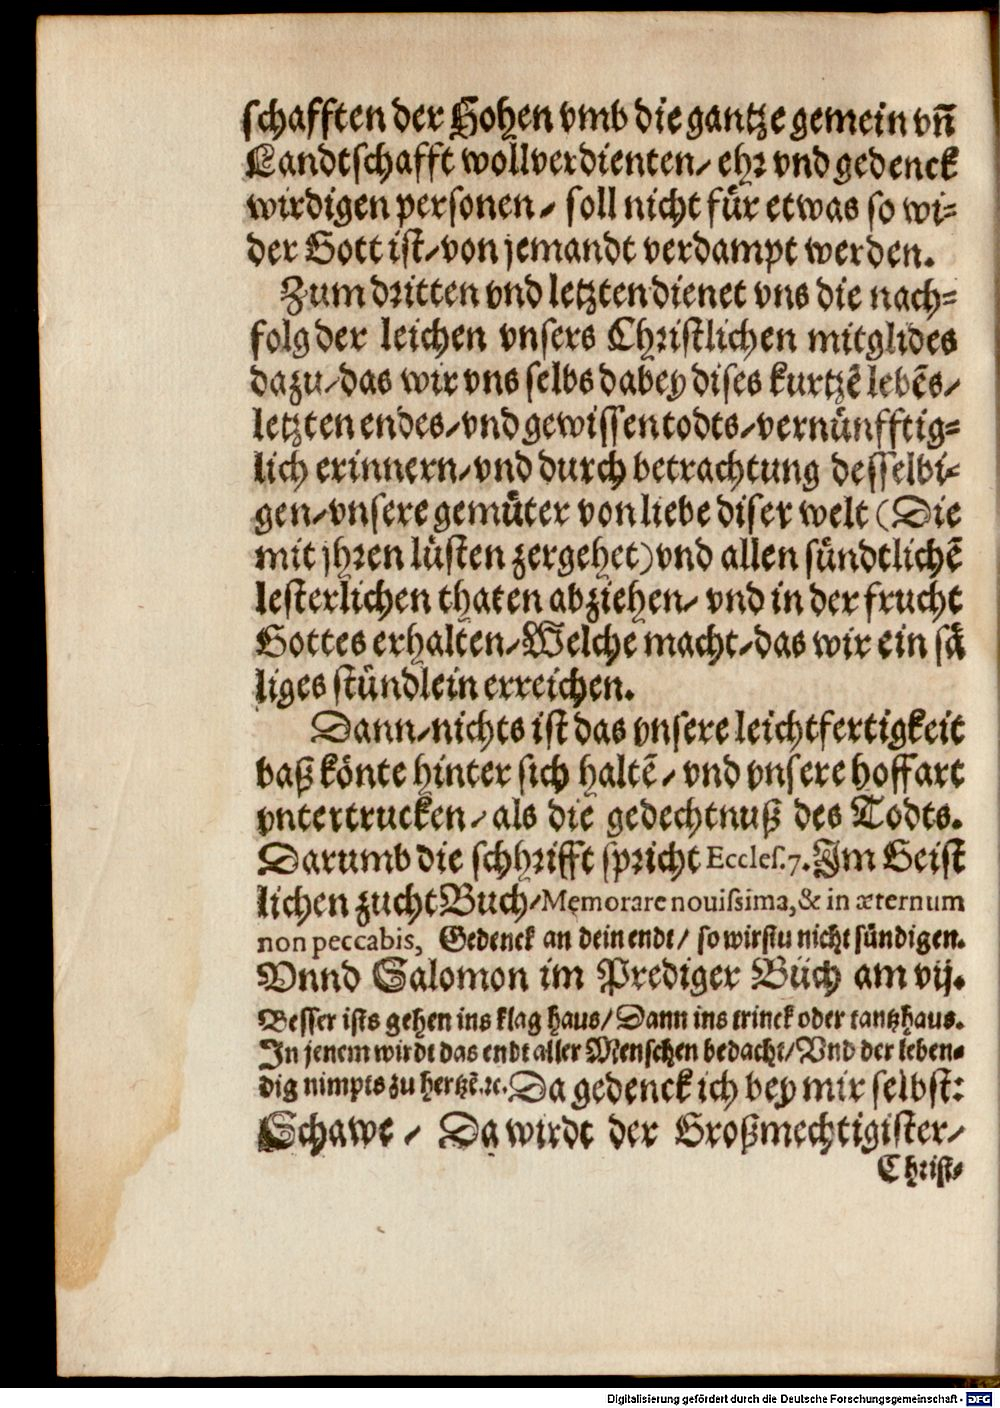 schafften der Hohen vmb die gantze gemein vñ
Landtschafft wollverdienten/ ehr vnd gedenck
wirdigen personen/ soll nicht für etwas so wi=
der Gott ist/ von jemandt verdampt werden.
Zum dritten vnd letzten dienet vns die nach=
folg der leichen vnsers Christlichen mitglides
dazu/ das wir vns selbs dabey dises kurtzē lebēs/
letzten endes/ vnd gewissen todts/ vernünfftig=
lich erinnern/ vnd durch betrachtung desselbi=
gen/ vnsere gemüter von liebe diser welt (Die
mit jhren lüsten zergehet) vnd allen sündtlichē
lesterlichen thaten abziehen/ vnd in der frucht
Gottes erhalten/ Welche macht/ das wir ein sä
liges stündlein erreichen.
Dann/ nichts ist das vnsere leichtfertigkeit
baß könte hinter sich haltē/ vnd vnsere hoffart
vntertrucken/ als die gedechtnuß des Todts.
Darumb die schhrifft spricht Eccles. 7. Im Geist
lichen zucht Buch/ Memorare nouissima, & in æternum
non peccabis, Gedenck an dein endt/ so wirstu nicht sündigen.
Vnnd Salomon im Prediger Büch am vij.
Besser ists gehen ins klag haus/ Dann ins trinck oder tantzhaus.
In jenem wirdt das endt aller Menschen bedacht/ Vnd der leben=
dig nimpts zu hertzē.ꝛc. Da gedenck ich bey mir selbst:
Schawe/ Da wirdt der Großmechtigister/
Christ=
Digitalisierung gefördert durch die Deutsche Forschungsgemeinschaft - DFG